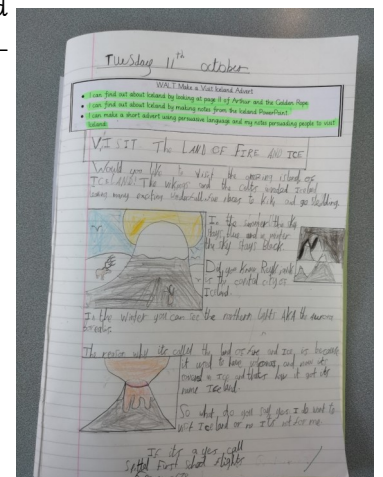 d
Tuesday 11th october
WALT: Make a Visit Iceland Advert
I can find out about Iceland by looking at page 8 of Arthur and the Golden Rope
I can find out about Iceland by making notes from the Iceland PowerPoint
I can make a short advert using persuasive language and my notes persuading people to visit
Iceland.
VISIT THE LAND OF FIRE AND ICE
Would you like to visit the amazing island of
ICELAND! The vikings and the celts
many exciting and go sledding.
In the summer the sky
stays blue and in winter
the sky stays black.
Did you know, Reykjavik
is the capital city of
Iceland.
In the winter you can see the northern lights AKA the aurora
borealis.
The reason why its called the land of fire and ice, is because
it used to have volcanoes, and now its
Ice and thats how it got its
name Iceland.
So what, do you say yes I do want to
visit Iceland or no its not for me.
If its a yes, call
First School Flights